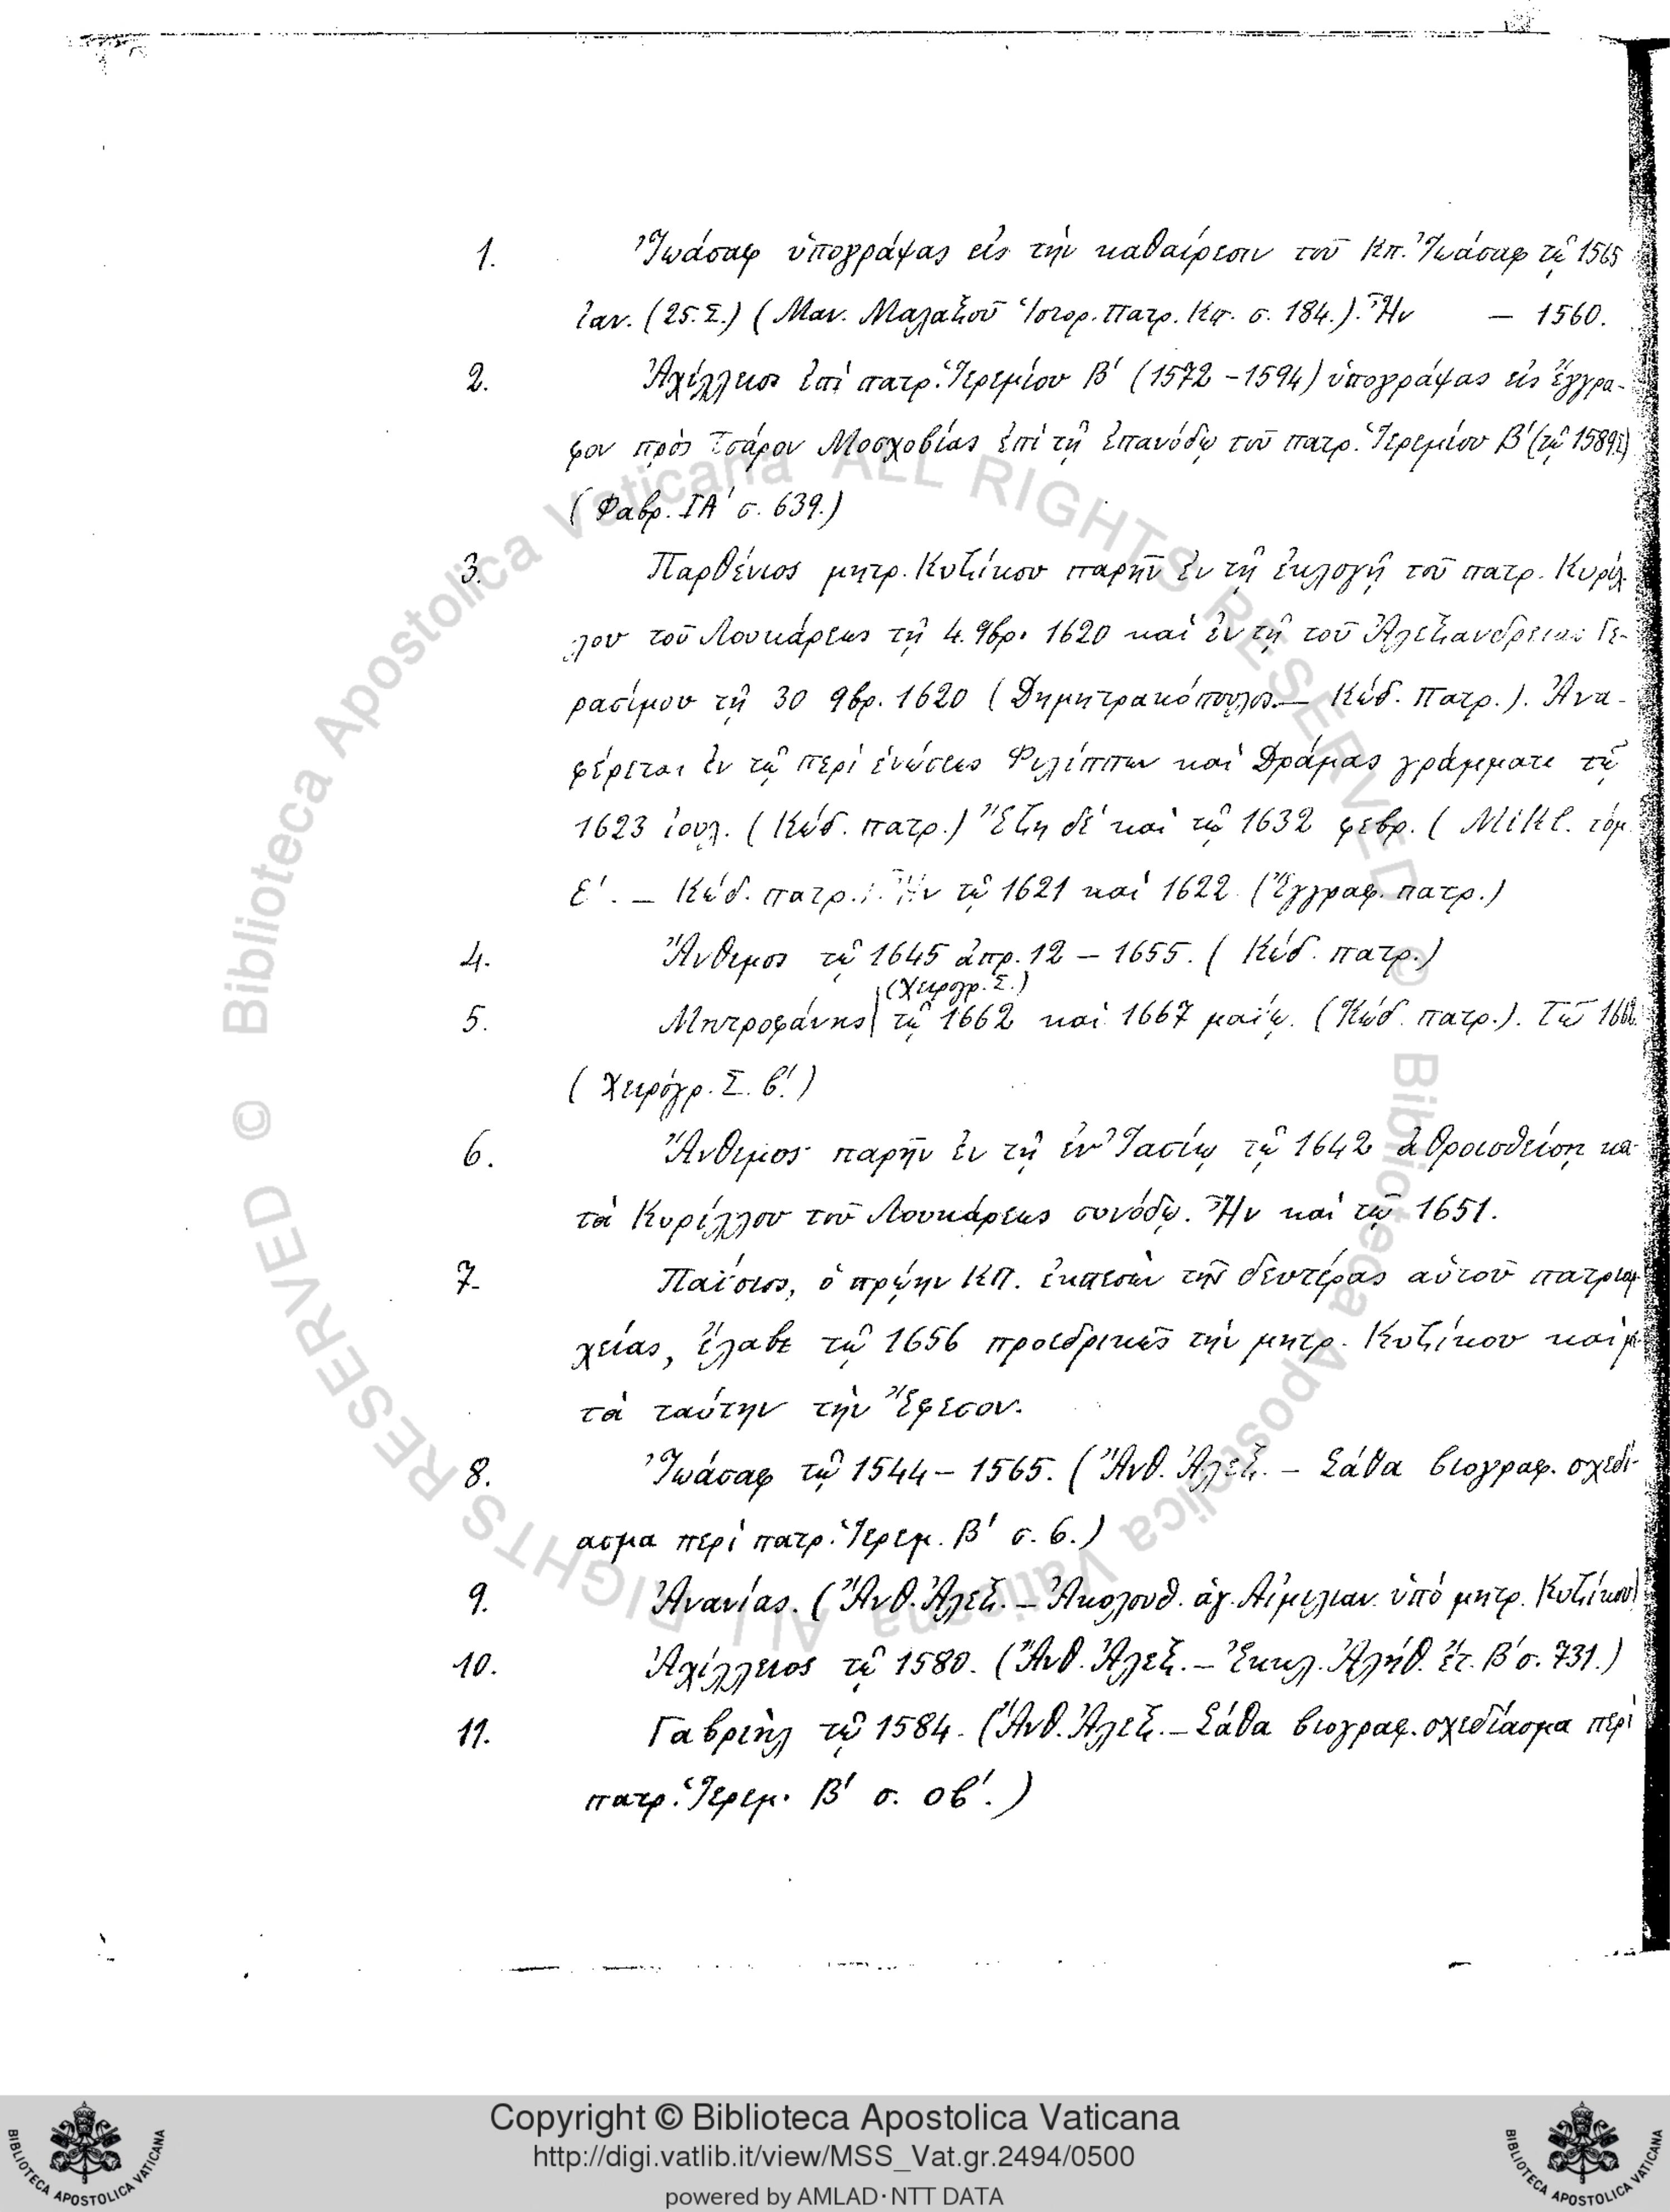 1. Ἰωάσαφ ὑπογράψας εἰς τὴν καθαίρεσιν τοῦ Κπ. Ἰωάσαφ τῷ 1565
ἰαν. (25. Σ.) (Μαν. Μαλαξοῦ Ἱστορ. Πατρ. Κπ. σ. 184.). Ἦν — 1560.
2. Ἀχίλλειος ἐπὶ πατρ. Ἱερεμίου Β' (1572 - 1594) ὑπογράψας εἰς ἔγγρα-
φον πρὸς Τσάρον Μοσχοβίας ἐπὶ τῇ ἐπανόδῳ τοῦ πατρ. Ἱερεμίου Β' (τῷ 1589
(Φαβρ. ΙΑ' σ. 639.)
3. Παρθένιος μητρ. Κυζίκου παρῆν ἐν τῇ ἐκλογῇ τοῦ πατρ. Κυρίλ-
λου τοῦ Λουκάρεως τῇ 4. 9βρ. 1620 καὶ ἐν τῇ τοῦ Ἀλεξανδρείας Γε-
ρασίμου τῇ 30 9βρ. 1620 (Δημητρακόπουλος. — Κώδ. Πατρ.). Ἀνα-
φέρεται ἐν τῷ περὶ ἑνώσεως Φιλίππων καὶ Δράμας γράμματι τῷ
1623 ἰουλ. (Κώδ. πατρ.) Ἔζη δὲ καὶ τῷ 1632 φεβρ. (Mikl. τόμ.
Ε'. — Κώδ. πατρ.). Ἦν τῷ 1621 καὶ 1622. (Ἔγγραφ. πατρ.)
4. Ἄνθιμος τῷ 1645 ἀπρ. 12 — 1655. (Κώδ. πατρ.)
(Χειρογρ. Σ.)
5. Μητροφάνης τῷ 1662 καὶ 1667 μαΐῳ. (Κώδ. πατρ.). Τῷ
(Χειρόγρ. Σ. β'.)
6. Ἄνθιμος παρῆν ἐν τῇ ἐν Ἰασίῳ τῷ 1642 ἀθροισθείσῃ κα-
τὰ Κυρίλλου τοῦ Λουκάρεως συνόδῳ. Ἦν καὶ τῷ 1651.
7. Παΐσιος, ὁ πρῴην ΚΠ. ἐκπεσὼν τῆς δευτέρας αὐτοῦ πατριαρ-
χείας, ἔλαβε τῷ 1656 προεδρικῶς τὴν μητρ. Κυζίκου καὶ με-
τὰ ταύτην τὴν Ἔφεσον.
8. Ἰωάσαφ τῷ 1544 — 1565. (Ἄνθ. Ἀλεξ. — Σάθα βιογραφ. σχεδί-
ασμα περὶ πατρ. Ἱερεμ. Β' σ. 6.)
9. Ἀνανίας. (Ἄνθ. Ἀλεξ. — Ἀκολουθ. ἁγ. Αἰμιλιαν. ὑπὸ μητρ. Κυζίκου)
10. Ἀχίλλειος τῷ 1580. (Ἄνθ. Ἀλεξ. — Ἐκκλ. Ἀλήθ. ἔτ. Β' σ. 731.)
11. Γαβριὴλ τῷ 1584. (Ἄνθ. Ἀλεξ. — Σάθα βιογραφ. σχεδίασμα περὶ
πατρ. Ἱερεμ. Β' σ. οβ'.)
© Biblioteca Apostolica Vaticana ALL RIGHTS RESERVED
© Biblioteca Apostolica Vaticana ALL RIGHTS RESERVED
Copyright © Biblioteca Apostolica Vaticana
http://digi.vatlib.it/view/MSS_Vat.gr.2494/0500
powered by AMLAD·NTT DATA
BIBLIOTECA APOSTOLICA VATICANA
BIBLIOTECA APOSTOLICA VATICANA